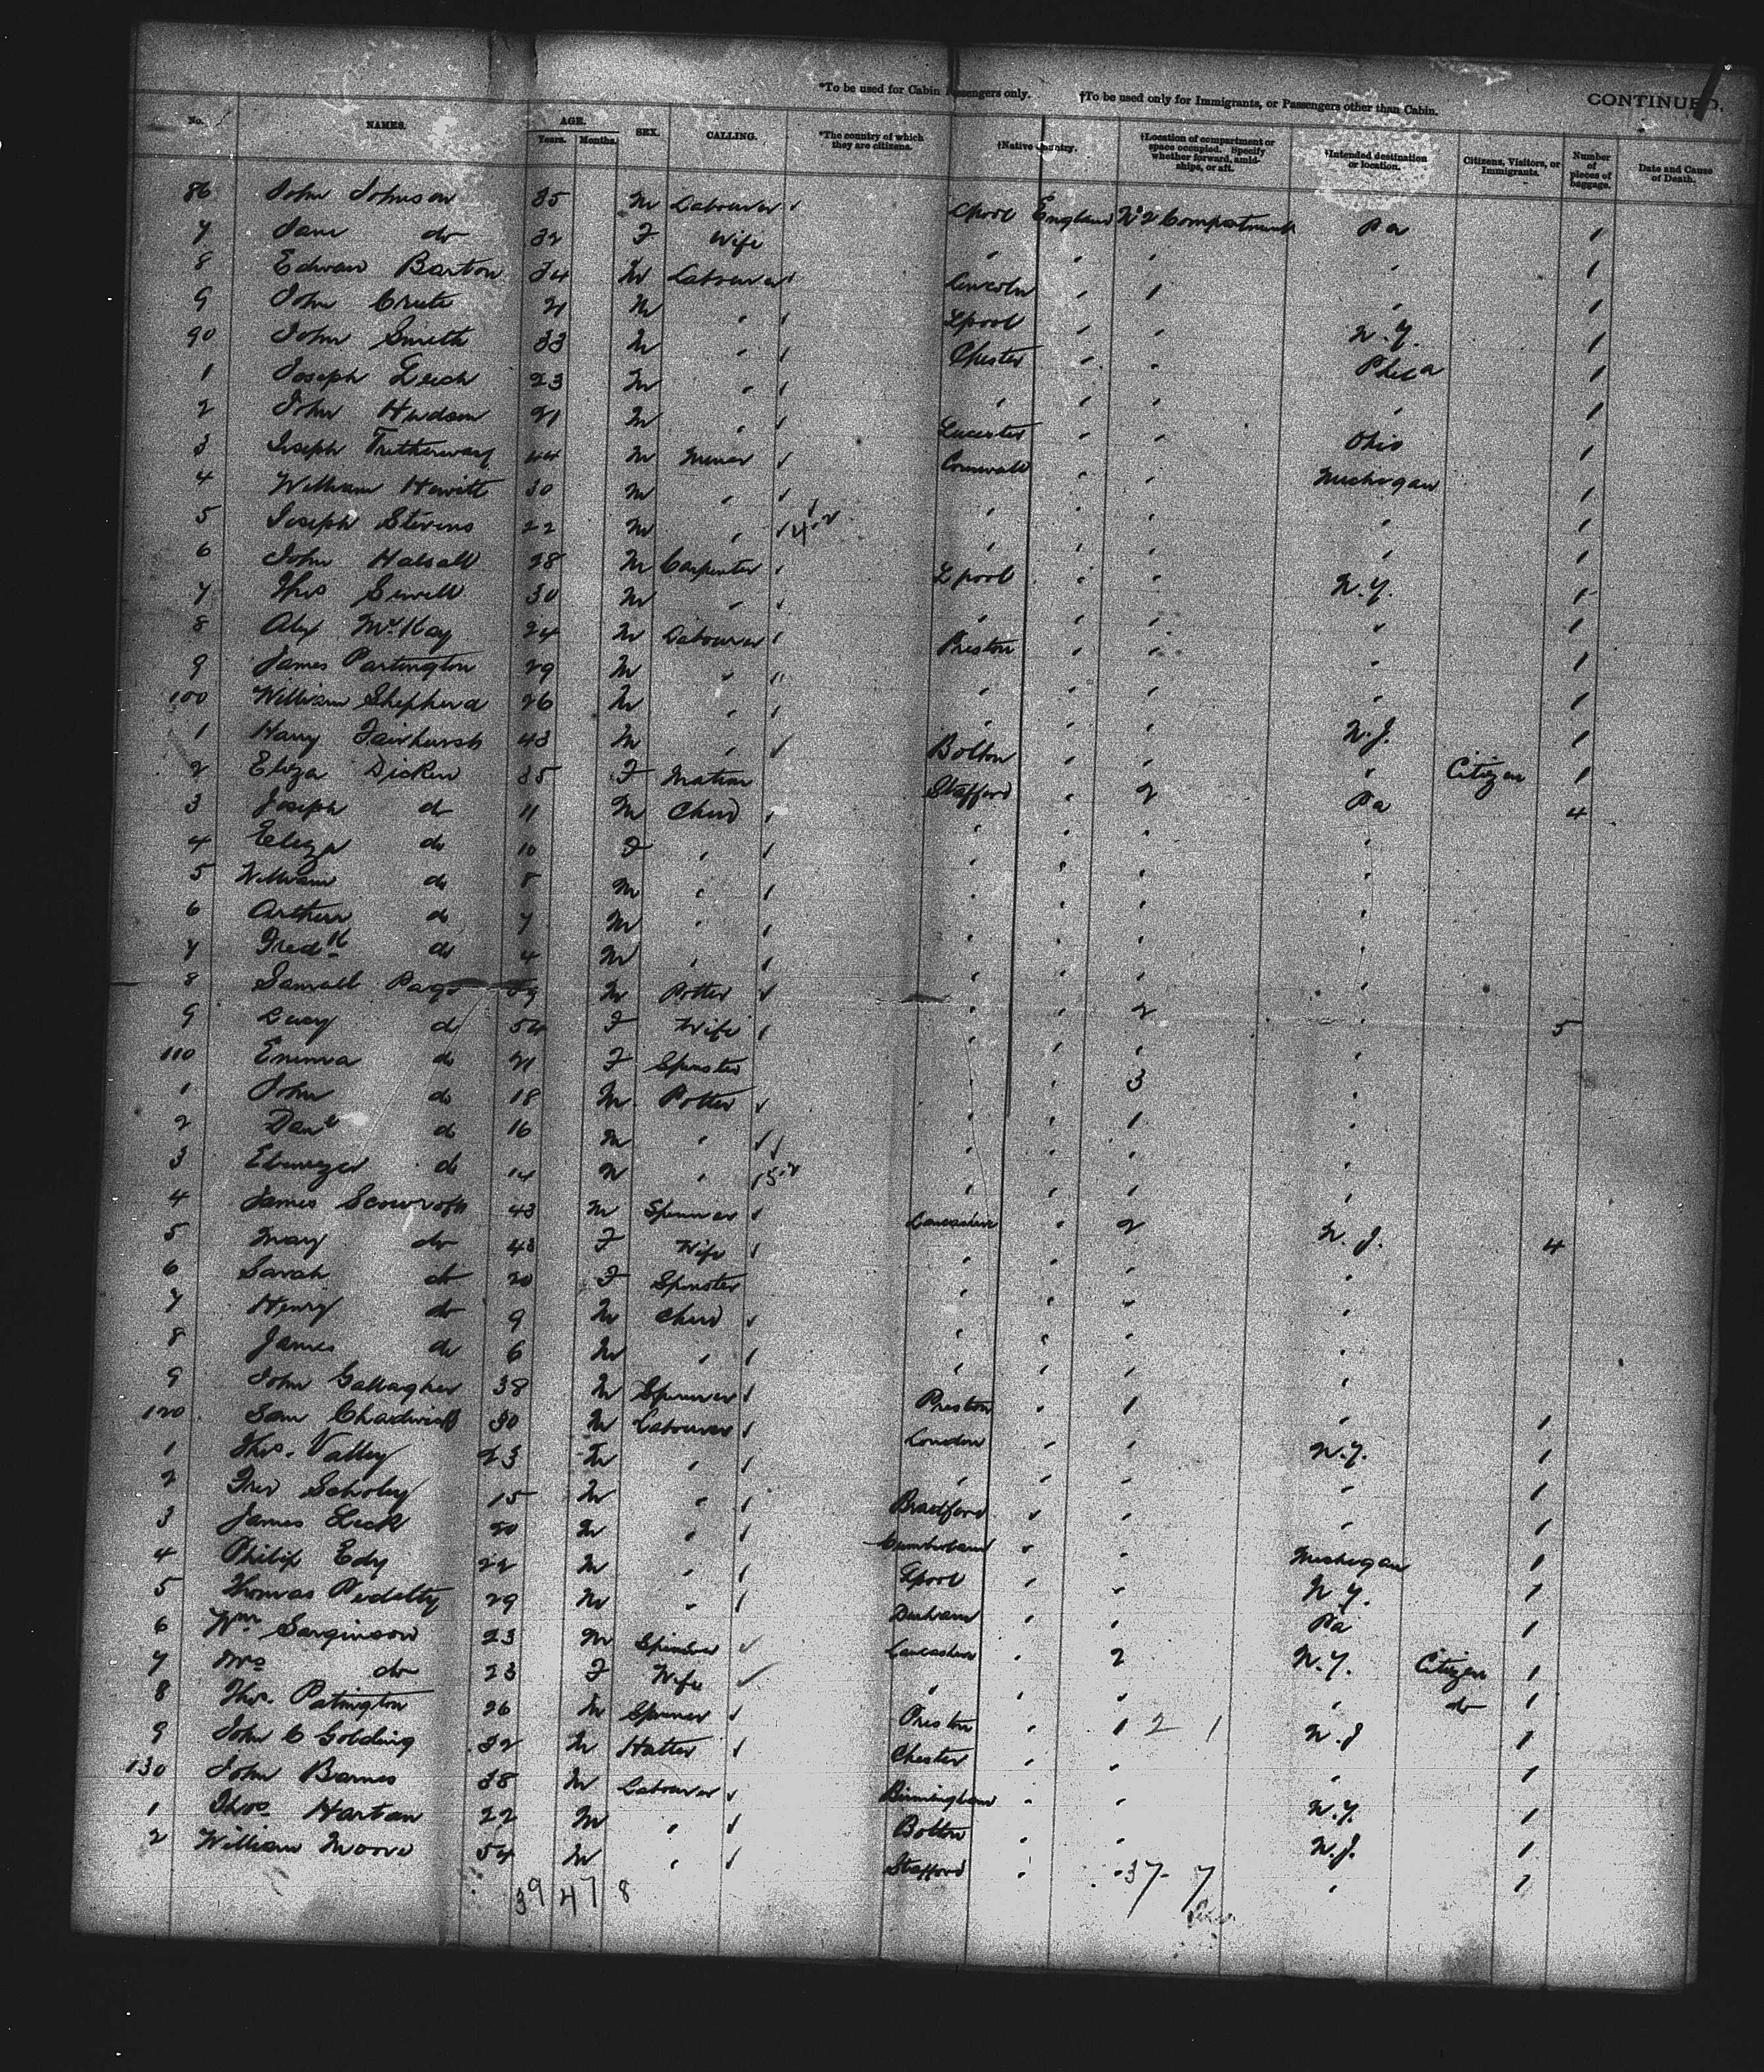 *To be used for Cabin Passengers only. †To be used only for Immigrants, or Passengers other than Cabin. CONTINUED.
No. NAMES. AGE. Years. Months. SEX. CALLING. *The country of which they are citizens. †Native Country. †Location of compartment or space occupied. Specify whether forward, amidships, or aft. †Intended destination or location. Citizens, Visitors, or Immigrants. Number of pieces of baggage. Date and Cause of Death.
86 John Johnson 35 M Labourer L'pool England No 2 Compartment Pa 1
7 Jane do 32 F Wife " " " " 1
8 Edwan Barton 34 M Labourer Lincoln " 1 " 1
9 John Crute 21 M " Lpool " " N.Y. 1
90 John Smith 33 M " Chester " " Phila 1
1 Joseph Leich 23 M " " " " " 1
2 John Hudson 21 M " Leicester " " Ohio 1
3 Joseph Tretheway 44 M Miner Cornwall " " Michigan 1
4 William Hewitt 30 M " " " " " 1
5 Joseph Stevens 22 M " " " " " 1
6 John Halsall 28 M Carpenter Lpool " " N.Y. 1
7 Thos Sewell 30 M " " " " " 1
8 Alex McKay 24 M Labourer Preston " " " 1
9 James Partington 29 M " " " " " 1
100 William Shepherd 26 M " " " " N.J. 1
1 Harry Fairhurst 43 M " Bolton " " " Citizen 1
2 Eliza Dicken 35 F Matron Stafford " 2 Pa 4
3 Joseph do 11 M Child " " " "
4 Eliza do 10 F " " " " "
5 William do 8 M " " " " "
6 Arthur do 7 M " " " " "
7 Fredk do 4 M " " " " "
8 Samall Page M Potter " " 2 " 5
9 Lucy do 54 F Wife " " " "
110 Emma do 21 F Spinster " " 3 "
1 John do 18 M Potter " " 1 "
2 Danl do 16 M " " " " "
3 Ebenezer do 14 M " " " 1 "
4 James Scowroft 43 M Spinner Lancashire " 2 N.J. 4
5 Mary do 43 F Wife " " " "
6 Sarah do 20 F Spinster " " " "
7 Henry do 9 M Child " " " "
8 James do 6 M " " " " "
9 John Gallagher 38 M Spinner Preston " 1 " 1
120 Sam Chadwick 30 M Labourer London " " N.Y. 1
1 Thos. Valley 23 M " " " " " 1
2 Fred Scholey 15 M " Bradford " " " 1
3 James Leck 20 M " Cumberland " " Michigan 1
4 Philip Edy 22 M " Lpool " " N.Y. 1
5 Thomas 29 M " Durham " " Pa 1
6 Wm Sarginson 23 M Spinner Lancashire " 2 N.Y. Citizen 1
7 Mrs do 23 F Wife " " " " do 1
8 Thos. Patington 26 M Spinner Preston " 1 2 1 N.J 1
9 John C Golding 32 M Hatter Chester " " " 1
130 John Barnes 38 M Labourer Birmingham " " N.Y. 1
1 Thos Hartan 22 M " Bolton " " N.J. 1
2 William Moore 54 M " Stafford " " " 1
39 47 8 37 - 7